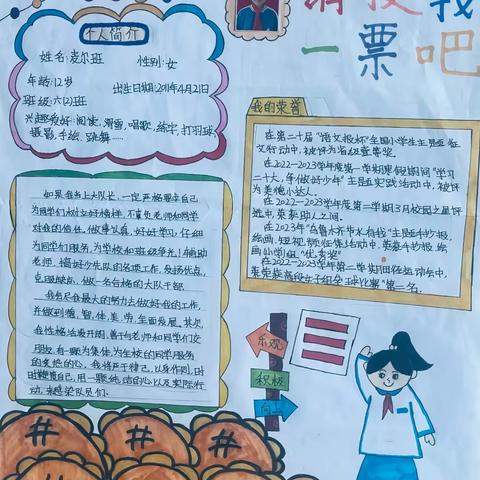 请投我
一票吧
个人简介
姓名:麦尔班 性别:女
年龄:12岁 出生日期:2011年4月21日
班级:六(2)班
兴趣爱好:阅读,滑雪,唱歌,练字,打羽球
摄影,手绘,跳舞……
我的荣誉
在第二十届"语文报杯"全国小学生主题征
文行动中,被评为省级壹等奖。
在2022—2023学年度第一学期寒假期间"学习
二十大,争做好少年"主题实践活动中,被评
为美德小达人。
在2022—2023学年度第二学期3月校园之星评
选中,荣获助人之间。
在2023年"乌鲁木齐节水有我"主题手抄报,
绘画,短视频征集活动中,荣获手抄报,绘
画小学组"优秀奖"
在2022—2023学年第二学期田径运动会中,
如果我当上大队长,一定严格要求自己
为同学们树立好榜样,不辜负老师和同学
对我的信任。做事认真,好好学习,仔细
为同学们服务,为学校和班级争光!辅助
老师,搞好少先队的各项工作,发扬优点,
克服缺点,做一名合格的大队干部
我会尽我最大的努力去做好我的工作,
并做到德,智,体,美,劳,全面发展。其次,
我性格活泼开朗,善于与老师和同学们交
朋友,有一颗为集体,为全校的同学服务
的炙热的心。我将严于律己,以身作则,时
时鞭策自己,用一颗纯洁的心以及实际行
动,来感染队员们.
乐观
积极
向上